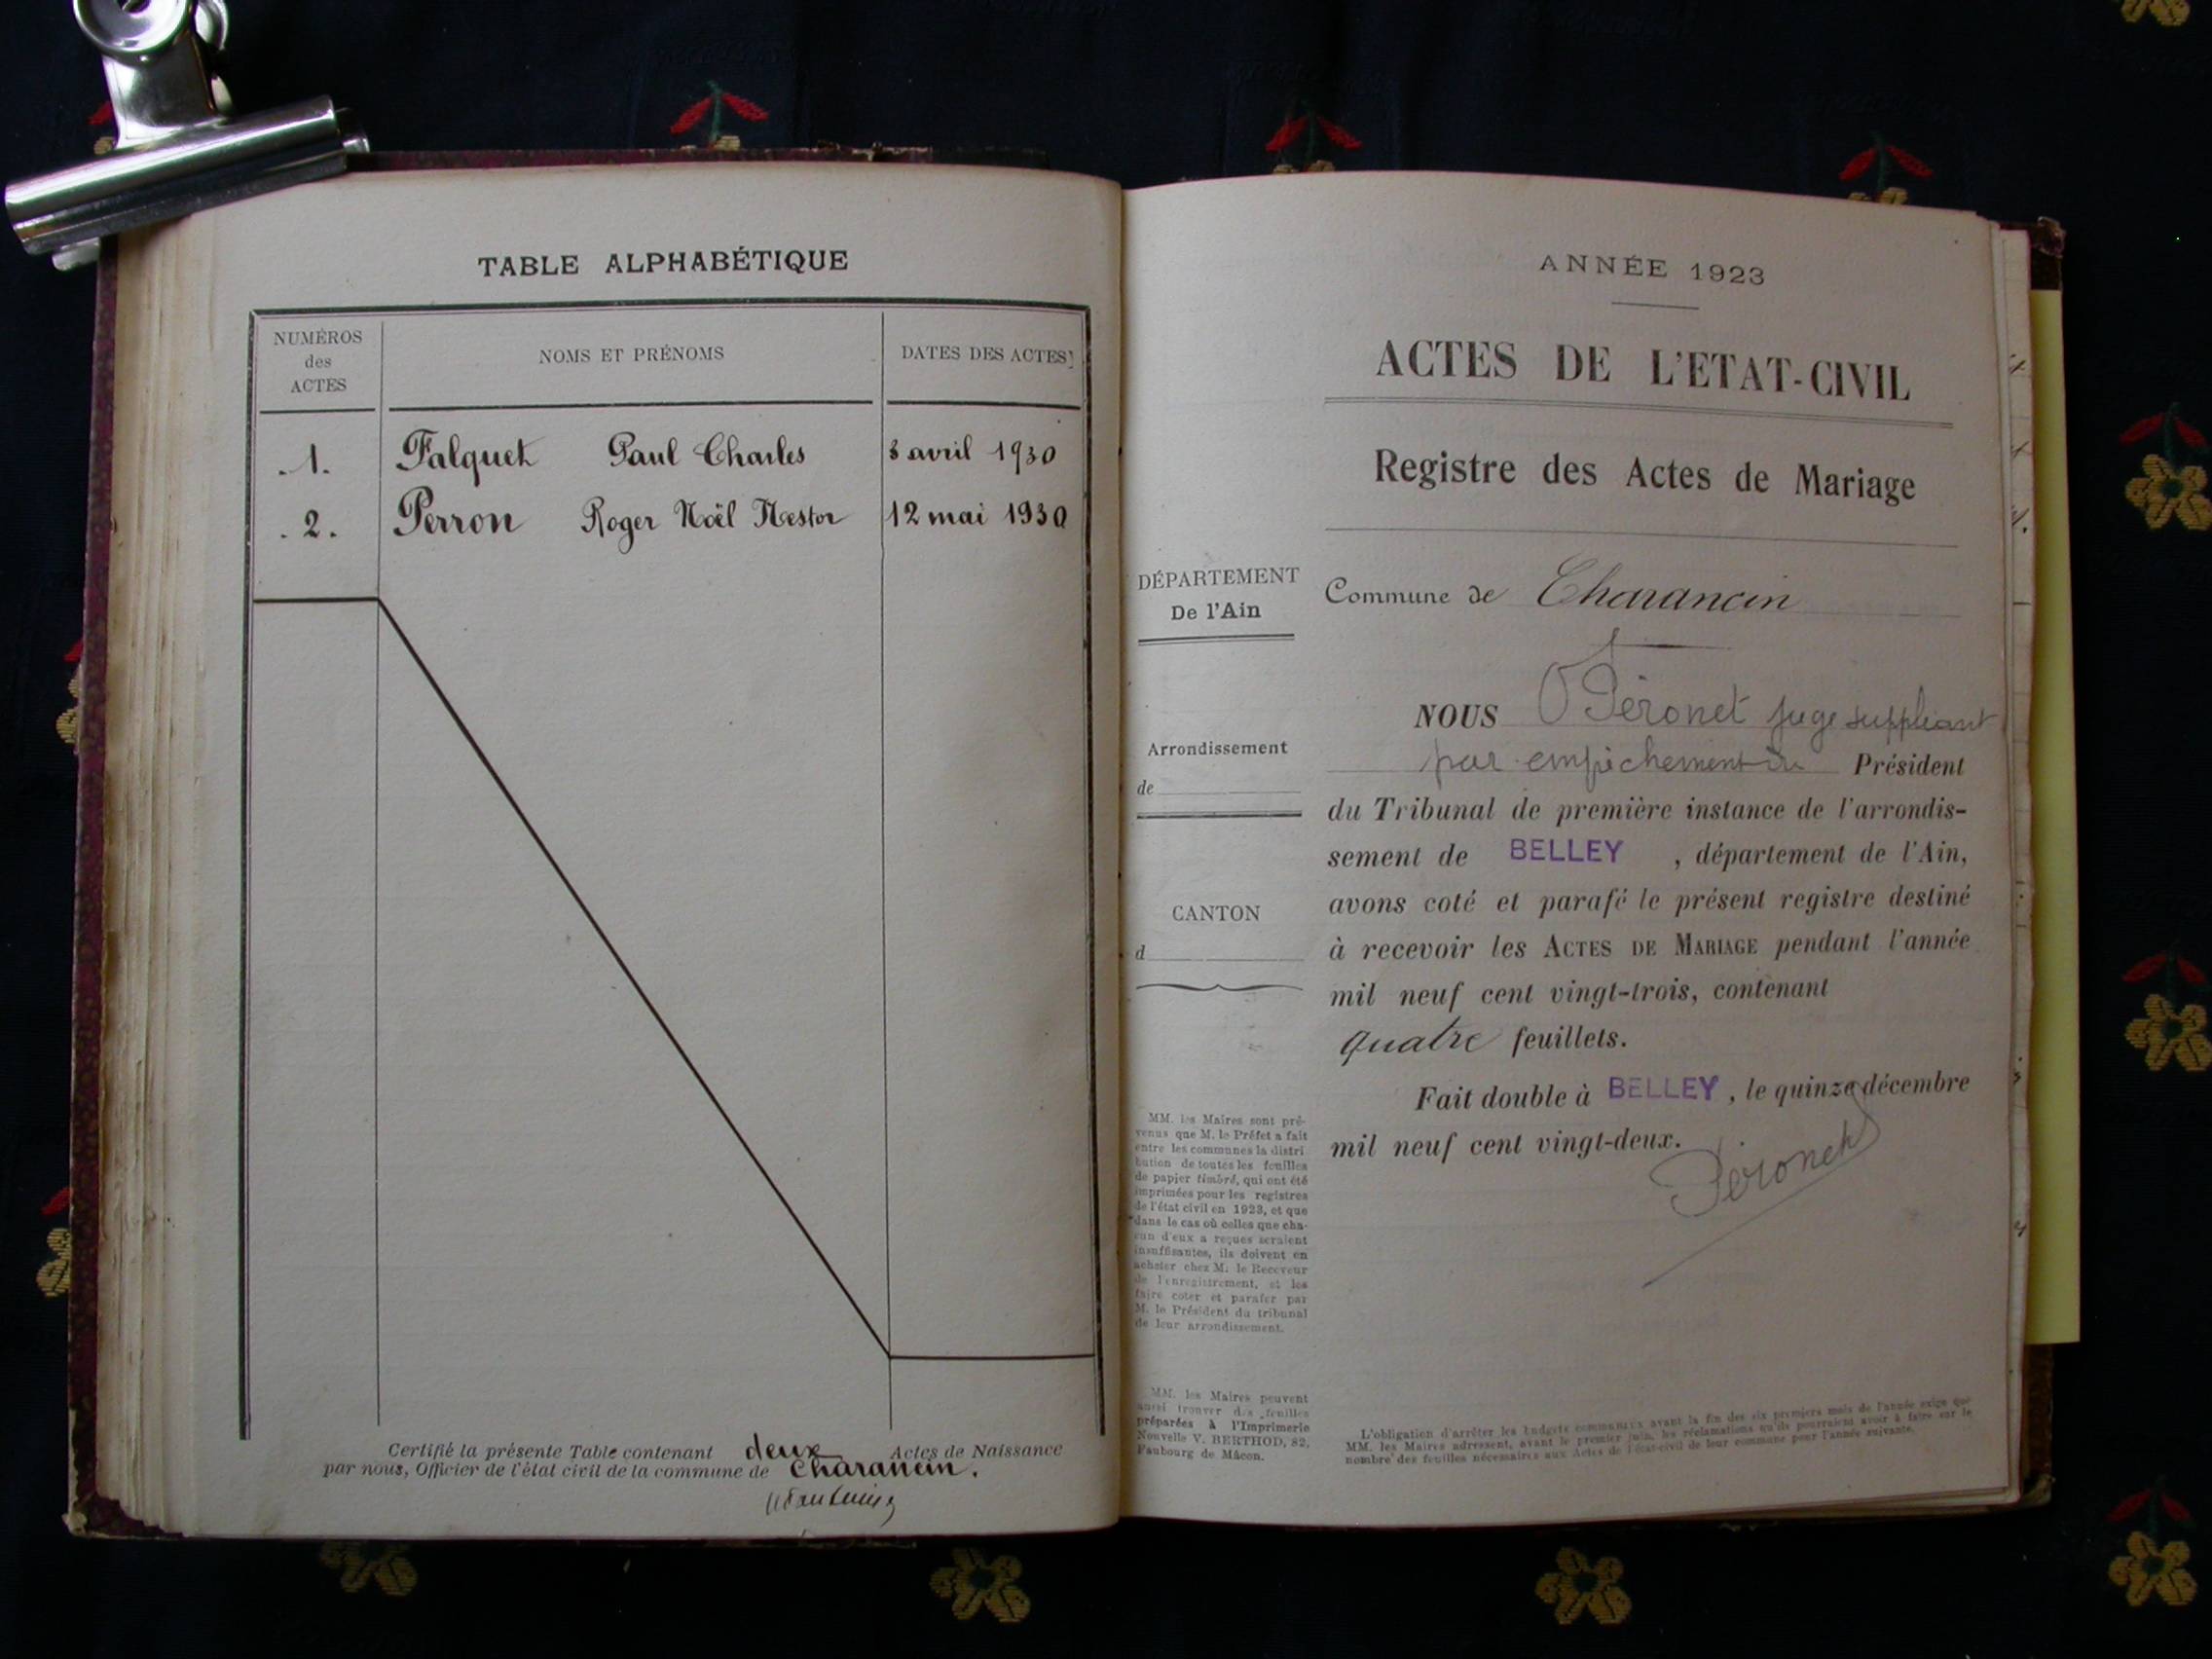 TABLE ALPHABÉTIQUE
NUMÉROS
des
ACTES
NOMS ET PRÉNOMS
DATES DES ACTES
.1. Falquet Paul Charles 3 avril 1930
.2. Perron Roger Noël Nestor 12 mai 1930
Certifié la présente Table contenant deux Actes de Naissance
par nous, Officier de l'état civil de la commune de Charancin.
ANNÉE 1923
ACTES DE L'ETAT-CIVIL
Registre des Actes de Mariage
DÉPARTEMENT
De l'Ain
Arrondissement
de
CANTON
d
MM. les Maires sont pré-
venus que M. le Préfet a fait
entre les communes la distri
bution de toutes les feuilles
de papier timbré, qui ont été
imprimées pour les registres
de l'état civil en 1923, et que
dans le cas où celles que cha-
cun d'eux a reçues seraient
insuffisantes, ils doivent en
acheter chez M. le Receveur
de l'enregistrement, et les
faire coter et parafer par
M. le Président du tribunal
de leur arrondissement.
MM. les Maires peuvent
aussi trouver des feuilles
préparées à l'Imprimerie
Nouvelle V. BERTHOD, 82,
Faubourg de Mâcon.
Commune de Charancin
NOUS Péronet juge suppléant
par empêchement du Président
du Tribunal de première instance de l'arrondis-
sement de BELLEY, département de l'Ain,
avons coté et parafé le présent registre destiné
à recevoir les ACTES DE MARIAGE pendant l'année
mil neuf cent vingt-trois, contenant
quatre feuillets.
Fait double à BELLEY, le quinze décembre
mil neuf cent vingt-deux.
Péronet
L'obligation d'arrêter les budgets communaux avant la fin des six premiers mois de l'année exige que
MM. les Maires adressent, avant le premier juin, les réclamations qu'ils pourraient avoir à faire sur le
nombre des feuilles nécessaires aux Actes de l'état-civil de leur commune pour l'année suivante.